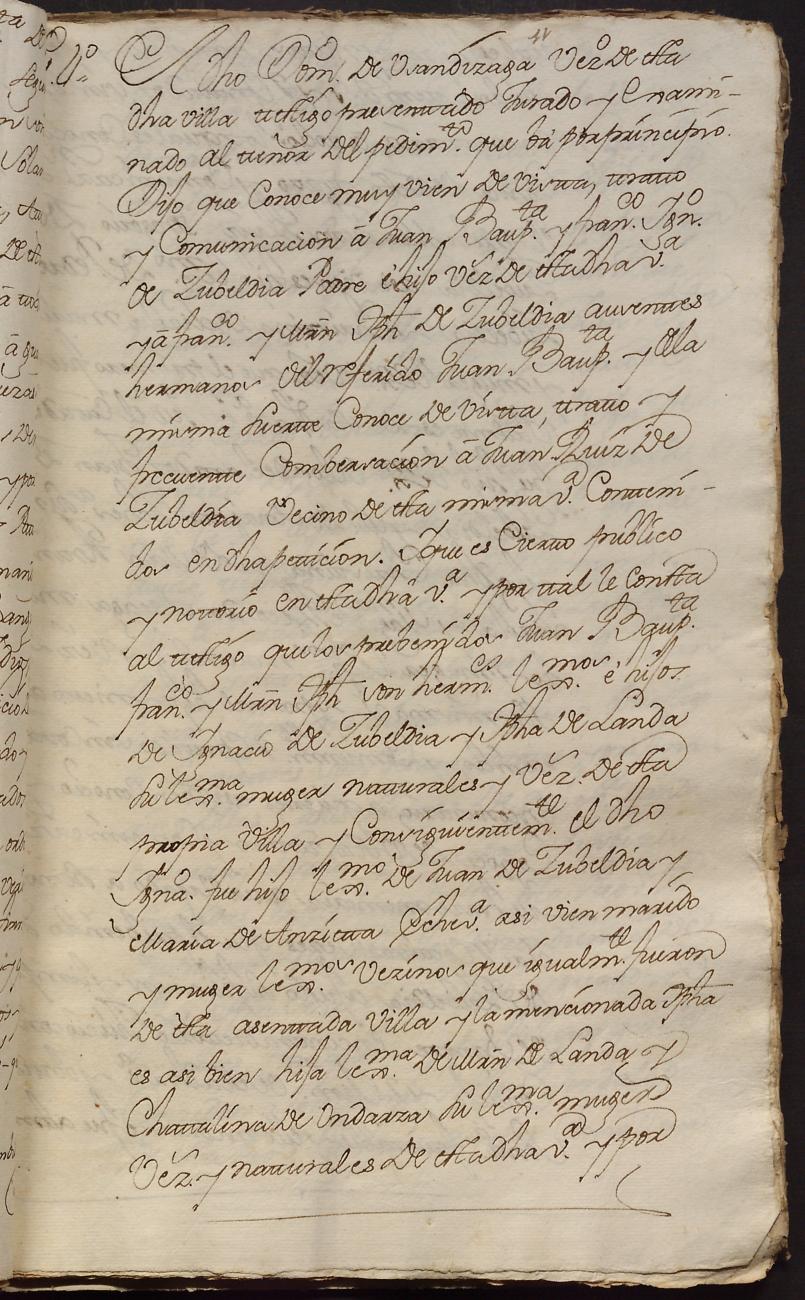 11
4º El dho Dom. de Usandizaga Vezº de esta
dha villa testigo presentado Jurado y Exami-
nado al tenor del pedimto. que bá por principio.
Dijo que Conoce muy vien de vista, tratto
y Comunicacion â Juan Baupta. y franco. Ignº.
de Zubeldia Padre è hijo Vez. de esta dha va.
y â franco. y Mrn Jph de Zubeldia ausentes
hermanos del referido Juan Baupta. y de la
misma suerte Conoce de vista, tratto y
frecuente Combersacion â Juan Ruiz de
Zubeldia Vecino de esta misma va. Conteni-
dos en dha peticion. Y que es Cierto publico
y nottorio en esta dha va. y por tal le Consta
al testigo que los prebenidos Juan Baupta.
franco. y Mrn Jph son hermos. lexmos. è hijos
de Ignacio de Zubeldia y Jpha de Landa
su lexma. muger natturales y Vez. de esta
propia Villa y Consiguientemte. el dho
Igno. fue hijo lexmo. de Juan de Zubeldia y
Maria de Anzietta Echeva. asi vien marido
y muger lexmos. Vezinos que igualmte. fueron
de esta asentada Villa y la mencionada Jpha
es asi bien hija lexma. de Mrn de Landa y
Chattalina de Ondarza su lexma. muger
Vez. y natturales de esta dha va. y por